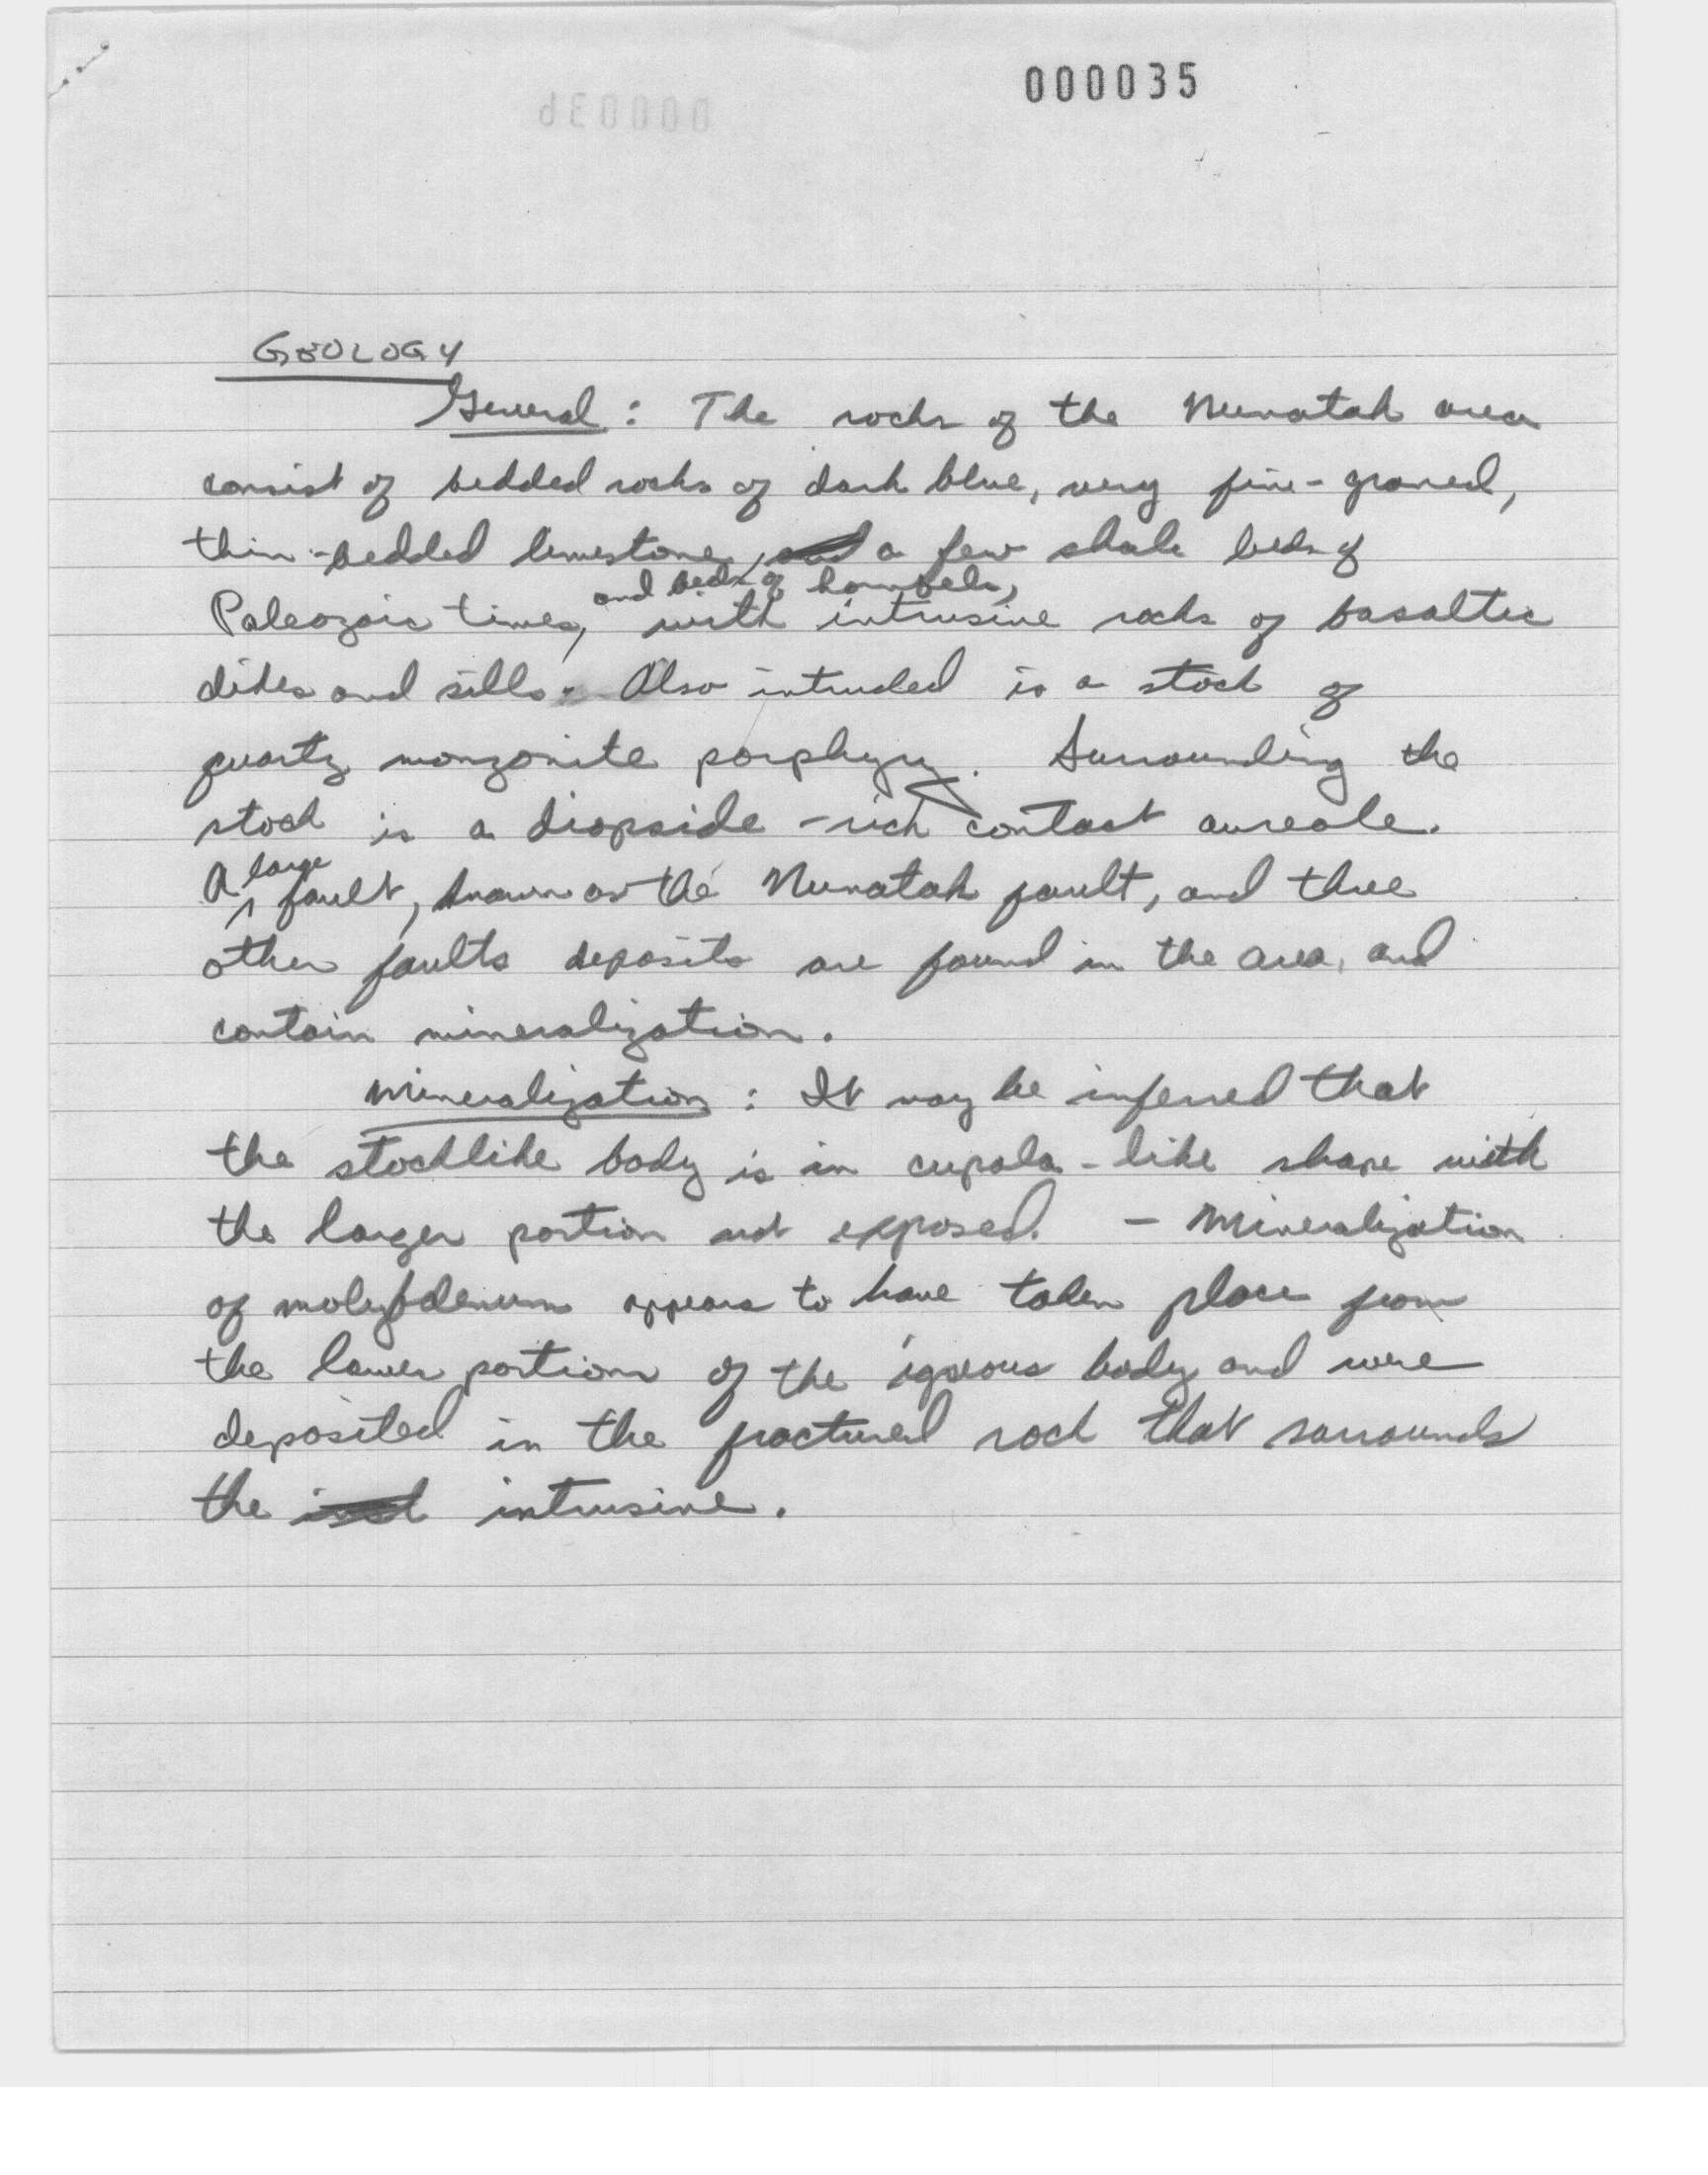 000035
GEOLOGY
General: The rocks of the Nunatak area
consist of bedded rocks of dark blue, very fine-graned,
thin-bedded limestone, a few shale beds of
and beds of hornfels,
Paleozoic times, with intrusive rocks of basaltic
dikes and sills. Also intruded is a stock of
quartz monzonite porphyry. Surrounding the
stock is a diopside-rich contact aureole.
A large fault, known as the Nunatak fault, and three
other faults deposits are found in the area, and
contain mineralization.
Mineralization: It may be inferred that
the stocklike body is in cupola-like shape with
the larger portion not exposed. - Mineralization
of molybdenum appears to have taken place from
the lower portions of the igneous body and were
deposited in the fractured rock that surrounds
the intrusive.